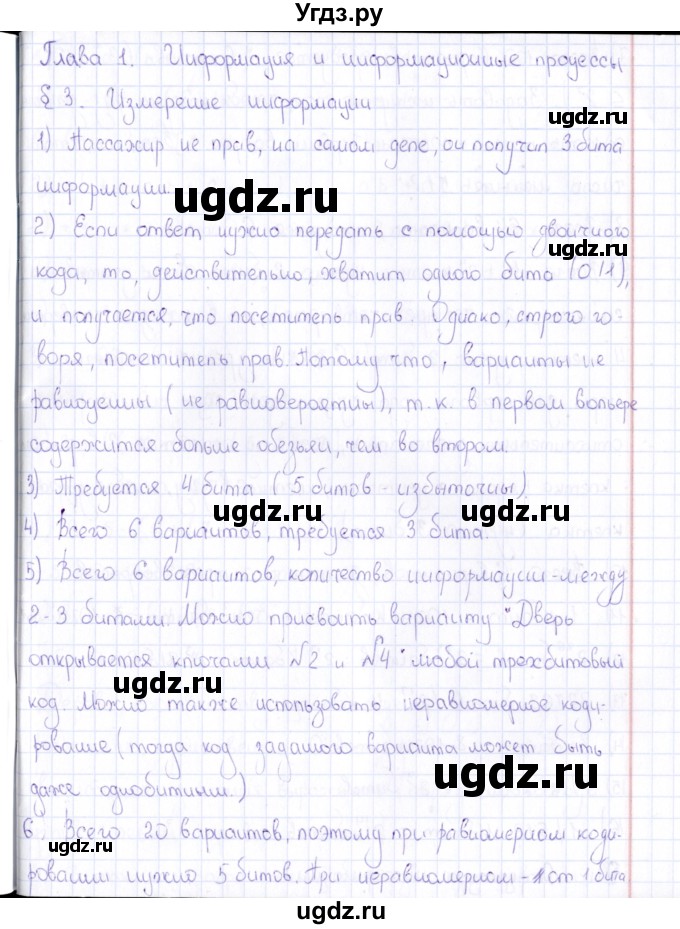 Угдз.ру
Глава 1. Информация и информационные процессы
§ 3. Измерение информации
ugdz.ru
1) Пассажир не прав, на самом деле, он получил 3 бита
информации.
ugdz.ru
ugdz.ru
2) Если ответ нужно передать с помощью двоичного
кода, то, действительно, хватит одного бита (0/1),
ugdz.ru
и получается, что посетитель прав. Однако, строго го-
воря, посетитель прав. Потому что, варианты не
равноценны (не равновероятны), т.к. в первом вольере
содержится больше обезьян, чем во втором.
3) Требуется 4 бита (5 битов - избыточны).
ugdz.ru
ugdz.ru
4) Всего 6 вариантов, требуется 3 бита.
5) Всего 6 вариантов, количество информации - между
2-3 битами. Можно присвоить варианту "Дверь
открывается ключами №2 и №4" любой трехбитовый
ugdz.ru
код. Можно также использовать неравномерное коди-
рование (тогда код заданного варианта может быть
ugdz.ru
даже однобитным.)
6. Всего 20 вариантов, поэтому при равномерном коди-
ugdz.ru
ровании нужно 5 битов. При неравномерном - от 1 бита
ugdz.ru